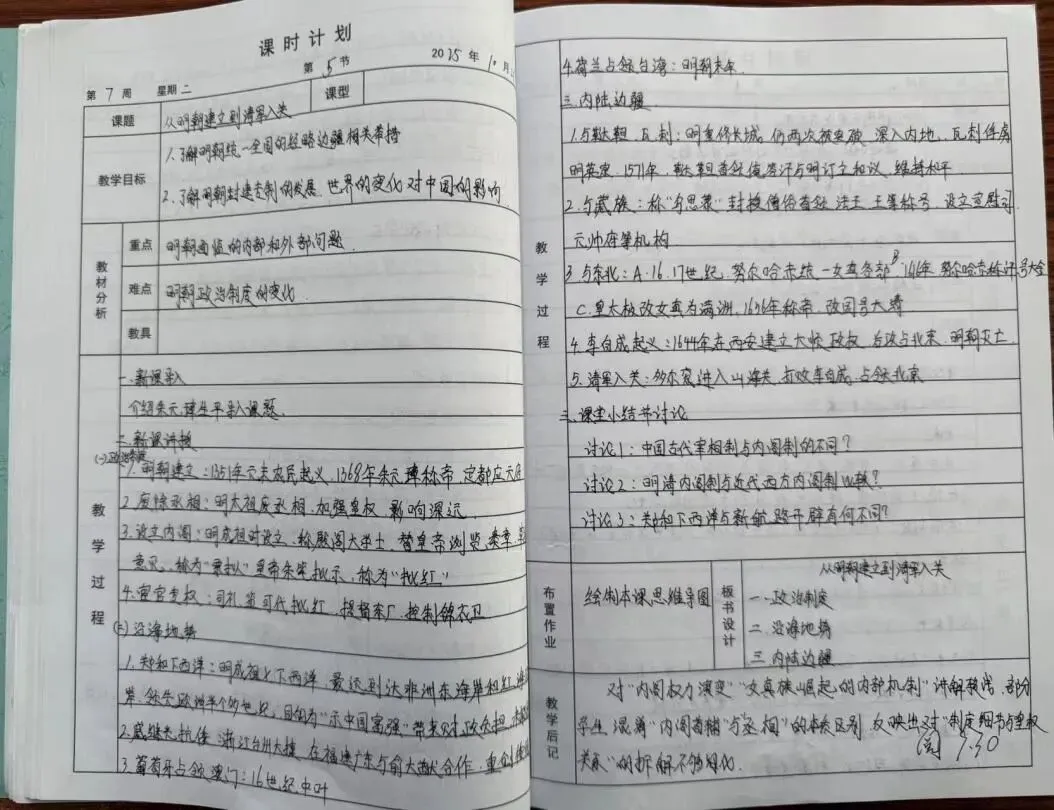 课时计划
第 5 节 2025年10月
第 7 周 星期 二 课型
课题 从明朝建立到清军入关
教学目标 1.了解明朝统一全国的经略边疆相关举措
2.了解明朝封建专制的发展、世界的变化对中国的影响
教材分析
重点 明朝面临的内部和外部问题
难点 明朝政治制度的变化
教具
教学过程
一.新课导入
介绍朱元璋生平导入课题.
二.新课讲授
(一)政治制度
1.明朝建立:1351年元末农民起义,1368年朱元璋称帝 定都应天府
2.废除丞相:明太祖废丞相,加强皇权 影响深远
3.设立内阁:明成祖时设立、称殿阁大学士、替皇帝浏览奏章、
意见,称为“票拟”皇帝朱笔批示,称为“批红”
4.宦官专权:司礼监可代批红,提督东厂,控制锦衣卫
(二)沿海地势
1.郑和下西洋:明成祖七下西洋 最远到达非洲东海岸和红海
岸 领先欧洲半个多世纪,目的为“示中国富强”带来财政负担,
2.戚继光抗倭:浙江台州大捷,在福建广东与俞大猷合作,重创
3.葡萄牙占领澳门:16世纪中叶
4.荷兰占领台湾:明朝末年
三.内陆边疆
1.与鞑靼、瓦剌:明重修长城,仍两次被突破,深入内地,瓦剌俘虏
明英宗,1571年,鞑靼首领俺答汗与明订立和议,维持和平
2.与藏族:称“乌思藏”封授僧俗首领 法王、王等称号 设立宣慰司
元帅府等机构
3.与东北:A.16、17世纪,努尔哈赤统一女真各部 B.1616年 努尔哈赤称汗 国号大金
C.皇太极改女真为满洲,1636年称帝,改国号大清
4.李自成起义:1644年在西安建立大顺政权 后攻占北京 明朝灭亡
5.清军入关:多尔衮进入山海关,打败李自成,占领北京
三.课堂小结节讨论
讨论1:中国古代宰相制与内阁制的不同?
讨论2:明清内阁制与近代西方内阁制比较?
讨论3:郑和下西洋与新航路开辟有何不同?
布置作业 绘制本课思维导图
板书设计 从明朝建立到清军入关
一.政治制度
二.沿海地势
三.内陆边疆
教学后记
对“内阁权力演变”“女真族崛起的内部机制”讲解较浅,部分
学生混淆“内阁首辅”与“丞相”的本质区别,反映出对“制度细节与皇权
关系”的拆解不够细化.
(阅) 9.30